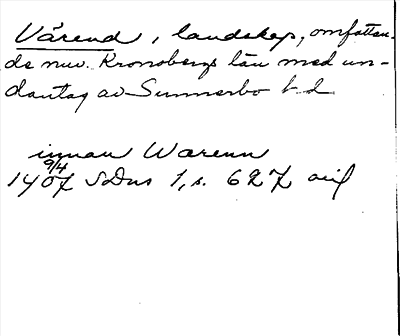 Värend, landskap, omfattan-
de nuv. Kronobergs län med un-
dantag av Sunnerbo hd
innan Warenn
9/4
1407 SDns 1, s. 627 orig